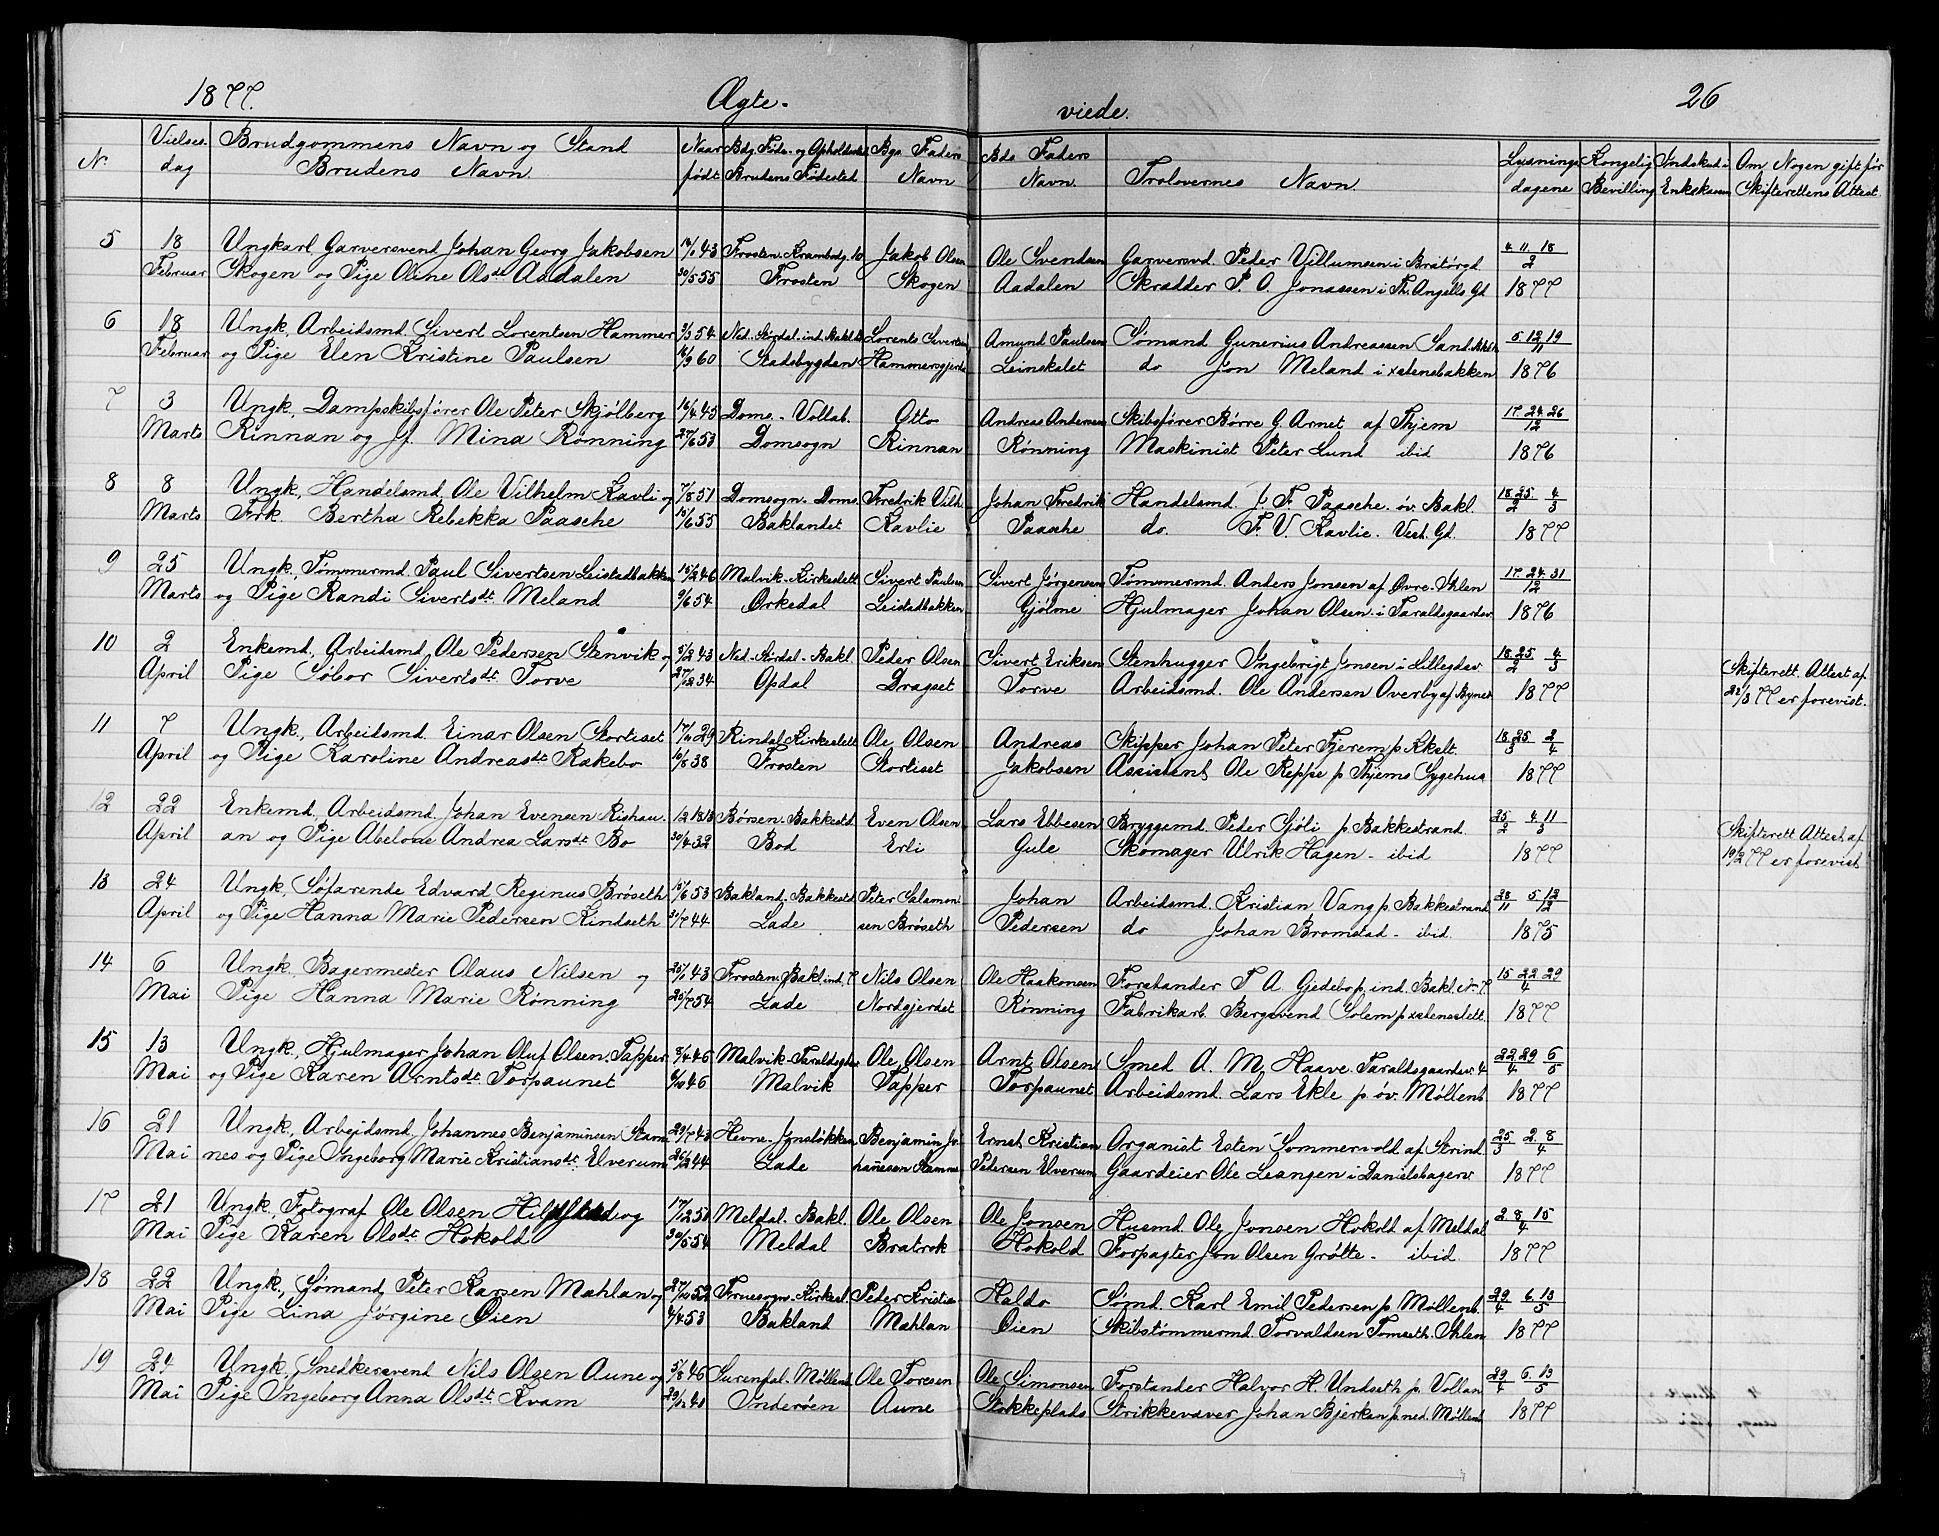 1877. Ægte- viede. 26
N. Vielses- dag Brudgommens Navn og Stand Brudens Navn Naar født Bdg. Føde- og Opholdssted Brudens Fødested Bgs Faders Navn Bds Faders Navn. Trolovernes Navn. Lysnings dagene Kongelig Bevilling Indskud i Enkekassen Om Nogen gift før Skifterettens Attest.
5 18 Ungkarl Garversvend Johan Georg Jakobsen 43 Frosten. Jakob Olsen Ole Svendsen Garversvd. Peder Villumsen i Bratørgd 4. 11. 18/2
Februar Skogen og Pige Oline Olsdt Aadalen 30/5 55 Frosten Skogen Aadalen Skrædder P. O. Jonassen i Th. Angells Gd 1877
6 18 Ungk, Arbeidsmd Sivert Lorentsen Hammer 9/3 54 Ned. Stördal. Lorents Sivertsen Amund Paulsen Sømand Gunerius Andreassen Sand. 5. 12. 19/11
Februar og Pige Elen Kristine Paulsen 16/9 60 Stadsbygden Hammersgjerde Leinskalet do Jon Meland i Xstensbakken 1876
7 3 Ungk, Dampskibsfører Ole Peter Skjølberg 16/4 45 Doms.- Vollab. Otto Andreas Andersen Skibsfører Børre G. Arnet af Thjem 17. 24. 26/12
Marts Rinnan og Jf. Mina Rønning 27/6 53 Domsogn Rinnan Rønning Maskinist Peter Lund ibid 1876
8 8 Ungk, Handelsmd, Ole Vilhelm Kavli og 7/8 51 Domsogn. Doms. Fredrik Vilh. Johan Fredrik Handelsmd. J. F. Paasche. öv. Bakl. 18. 25./2 4/3
Marts Frk. Bertha Rebekka Paasche 15/6 55 Baklandet Kavlie Paasche do. F. V. Kavlie. Vest. Gd. 1877
9 25 Ungk, Tømmermd. Paul Sivertsen Leistadbakken 15/2 46 Malvik. Kirkeslett Sivert Paulsen Sivert Jørgensen Tømmermd. Anders Jonsen af Øvre-Ihlen 17. 24. 31/12
Marts og Pige Randi Sivertsdt. Meland 9/6 54 Orkedal Leistadbakken Gjölme Hjulmager Johan Olsen i Taraldsgaardsv. 1876
10 2 Enkemd, Arbeidsmd, Ole Pedersen Stenvik og 5/2 43 Ned. Stördal. Bakl. Peder Olsen Sivert Eriksen Stenhugger Ingebrigt Jonsen i Lillegdsv 18. 25/2 4/3
April Pige Söbor Sivertsdt Torve 27/12 34 Opdal Dragset Torve Arbeidsmd. Ole Andersen Overby af Bynes 1877 Skifterett. Attest af 22/3 77 er forevist.
11 7 Ungk, Arbeidsmd. Einar Olsen Stortiset 29 Rindal, Kirkeslett Ole Olsen Andreas Skipper Johan Peter Fjerem p. Kkslt. 18. 25/3 2/4
April og Pige Karoline Andreasdt Rakebo 10/8 38 Frosten Stortiset Jakobsen Assistent Ole Reppe p Thjems Sygehus 1877
12 22 Enkemd, Arbeidsmd. Johan Evensen Rishau- Börsen. Bakkestd Even Olsen Lars Ebbesen Bryggemd. Peder Sjöli p Bakkestrand. 25/2 4. 11/3
April an og Pige Abelone Andrea Larsdt Bo 30/4 32 Bod Erli Gule Skomager Ulrik Hagen - ibid 1877 Skifterett. Attest af 19/2 77 er forevist.
13 24 Ungk, Söfarende Edvard Reginus Bröseth 15/6 53 Bakland. Bakkestd Peter Salamon- Johan Arbeidsmd. Kristian Vang p Bakkestrand 28/11 5. 12/12
April og Pige Hanna Marie Pedersen Kindseth 31/7 44 Lade sen Bröseth Pedersen do Johan Bromstad - ibid. 1875
14 6 Ungk. Bagermester Olaus Nilsen og 43 Frosten. Bakl. ind. 7 Nils Olsen Ole Haakonsen Forstander T. A. Gedebo p. ind. Bakl. No 7 15 22 29/4
Mai Pige Hanna Marie Rønning 25/7 54 Lade Nordgjerdet Rønning Fabrikarb. Bergsvend Solem p. Xstenslett. 1877
15 13 Ungk, Hjulmager Johan Oluf Olsen. Tapper 9/4 46 Malvik- Taraldsgdsv Ole Olsen Arnt Olsen Smed A. M. Haave. Taraldsgaardsv. 4 22. 29/4 6/5
Mai og Pige Karen Arntsdt Torpaunet 46 Malvik Tapper Torpaunet Arbeidsmd. Lars Ekle p. öv. Møllenb 1877
16 21 Ungk, Arbeidsmd. Johannes Benjaminsen Stam- 29/7 43 Hevne- Benjamin Jo- Ernst Kristian Organist Esten Sommervold af Strind. 25/3 2. 8/4
Mai nes og Pige Ingeborg Marie Kristiansdt. Elverum 26/12 44 Lade hannesen Stamnes Pedersen Elverum Gaardeier Ole Leangen i Danielsbagerv. 1877
17 21 Ungk, Fotograf Ole Olsen og 17/2 53 Meldal. Bakl. Ole Olsen Ole Jonsen Husmd. Ole Jonsen Hokold af Meldal 2 8 15/4
Mai Pige Karen Olsdt Hokold 30/5 54 Meldal Bratrok Hokold Forpagter Jon Olsen Grötte - ibid. 1877
18 22 Ungk, Sømand, Peter Karsen Mahlan og 27/10 52 Fruesogn. Kirkesl. Peder Kristian Haldo Sømd. Karl Emil Pedersen p. Møllenb. 29/4 6. 13/5
Mai Pige Lina Jörgine Øien 4/4 53 Bakland Mahlan Øien Skibstømmermd. Torvaldsen Tomseth. Ihlen 1877
19 24 Ungk, Snedkersvend Nils Olsen Aune og 5/8 46 Surendal. Møllenb Ole Toresen Ole Simonsen Forstander Halvor H. Undseth p. Vollan 29/4 6. 13/5
Mai Pige Ingeborg Anna Olsdt. Kvam Inderøen Aune Stokkeplads Strikkevæver Johan Bjerkan p ned. Møllenb 1877